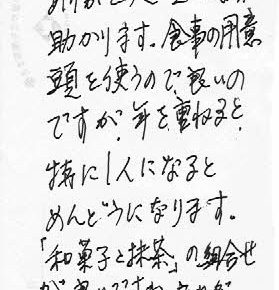 助かります。食事の用意
頭を使うので、良いの
ですが、年を重ねると、
特に1人になると
めんどうになります。
「和菓子と抹茶」の組合せ